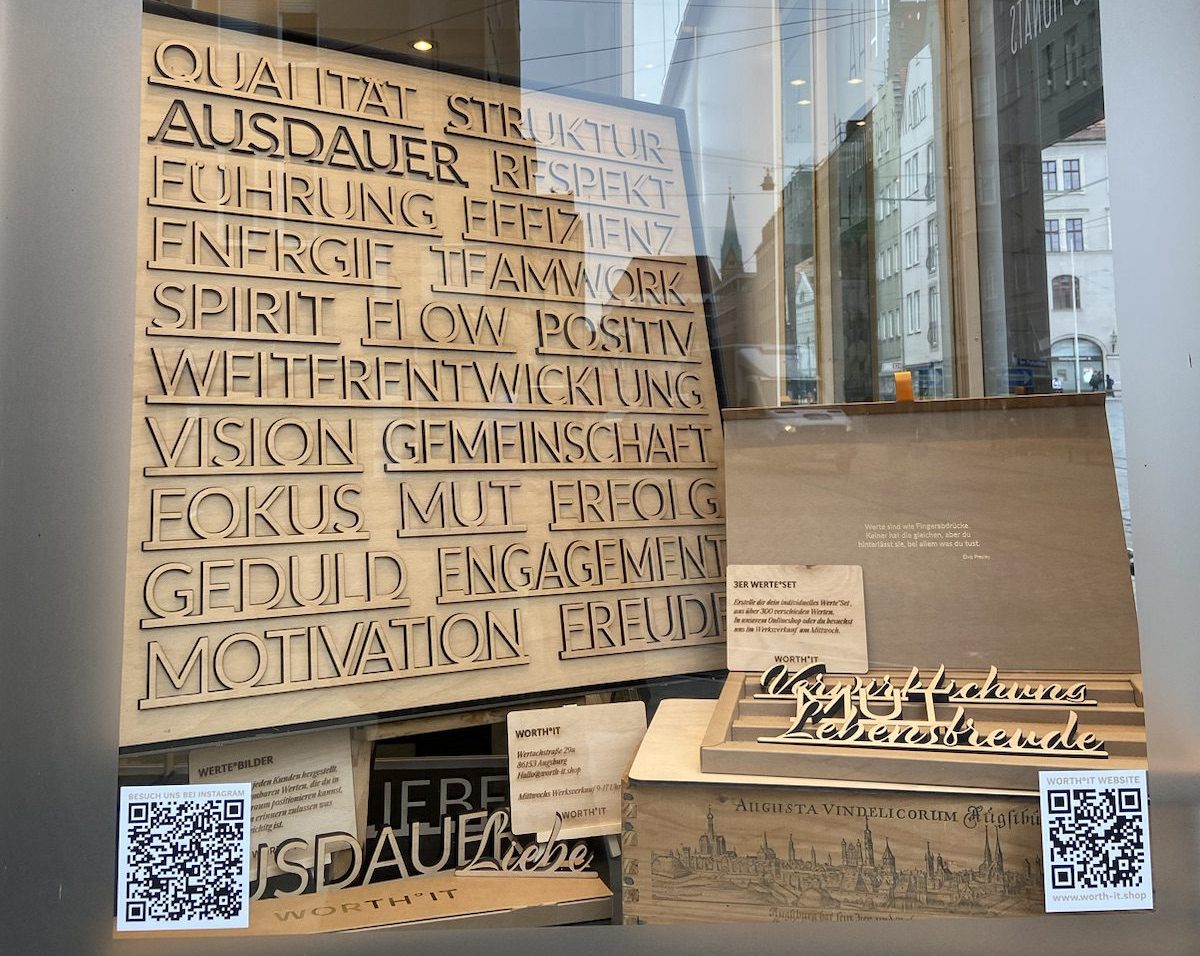 QUALITÄT STRUKTUR
AUSDAUER RESPEKT
FÜHRUNG EFFIZIENZ
ENERGIE TEAMWORK
SPIRIT FLOW POSITIV
WEITERENTWICKLUNG
VISION GEMEINSCHAFT
FOKUS MUT ERFOLG
GEDULD ENGAGEMENT
MOTIVATION FREUDE
Werte sind wie Fingerabdrücke.
Keiner hat die gleichen, aber du
hinterlässt sie, bei allem was du tust.
Elvis Presley
3ER WERTE*SET
Erstelle dir dein individuelles Werte*Set,
aus über 300 verschieden Werten.
In unserem Onlineshop oder du besuchst
uns im Werksverkauf am Mittwoch.
WORTH*IT
MUT
Lebensfreude
WORTH*IT
Wertachstraße 29a
86153 Augsburg
Hallo@worth-it.shop
Mittwochs Werksverkauf 9-17 Uhr
WORTH*IT
WERTE*BILDER
jeden Kunden hergestellt,
baren Werten, die du in
raum positionieren kannst,
erinnern zulassen was
ichtig ist.
LIEBE
USDAUER
Liebe
WORTH*IT
AUGUSTA VINDELICORUM Augsbu
BESUCH UNS BEI INSTAGRAM
WORTH*IT WEBSITE
www.worth-it.shop